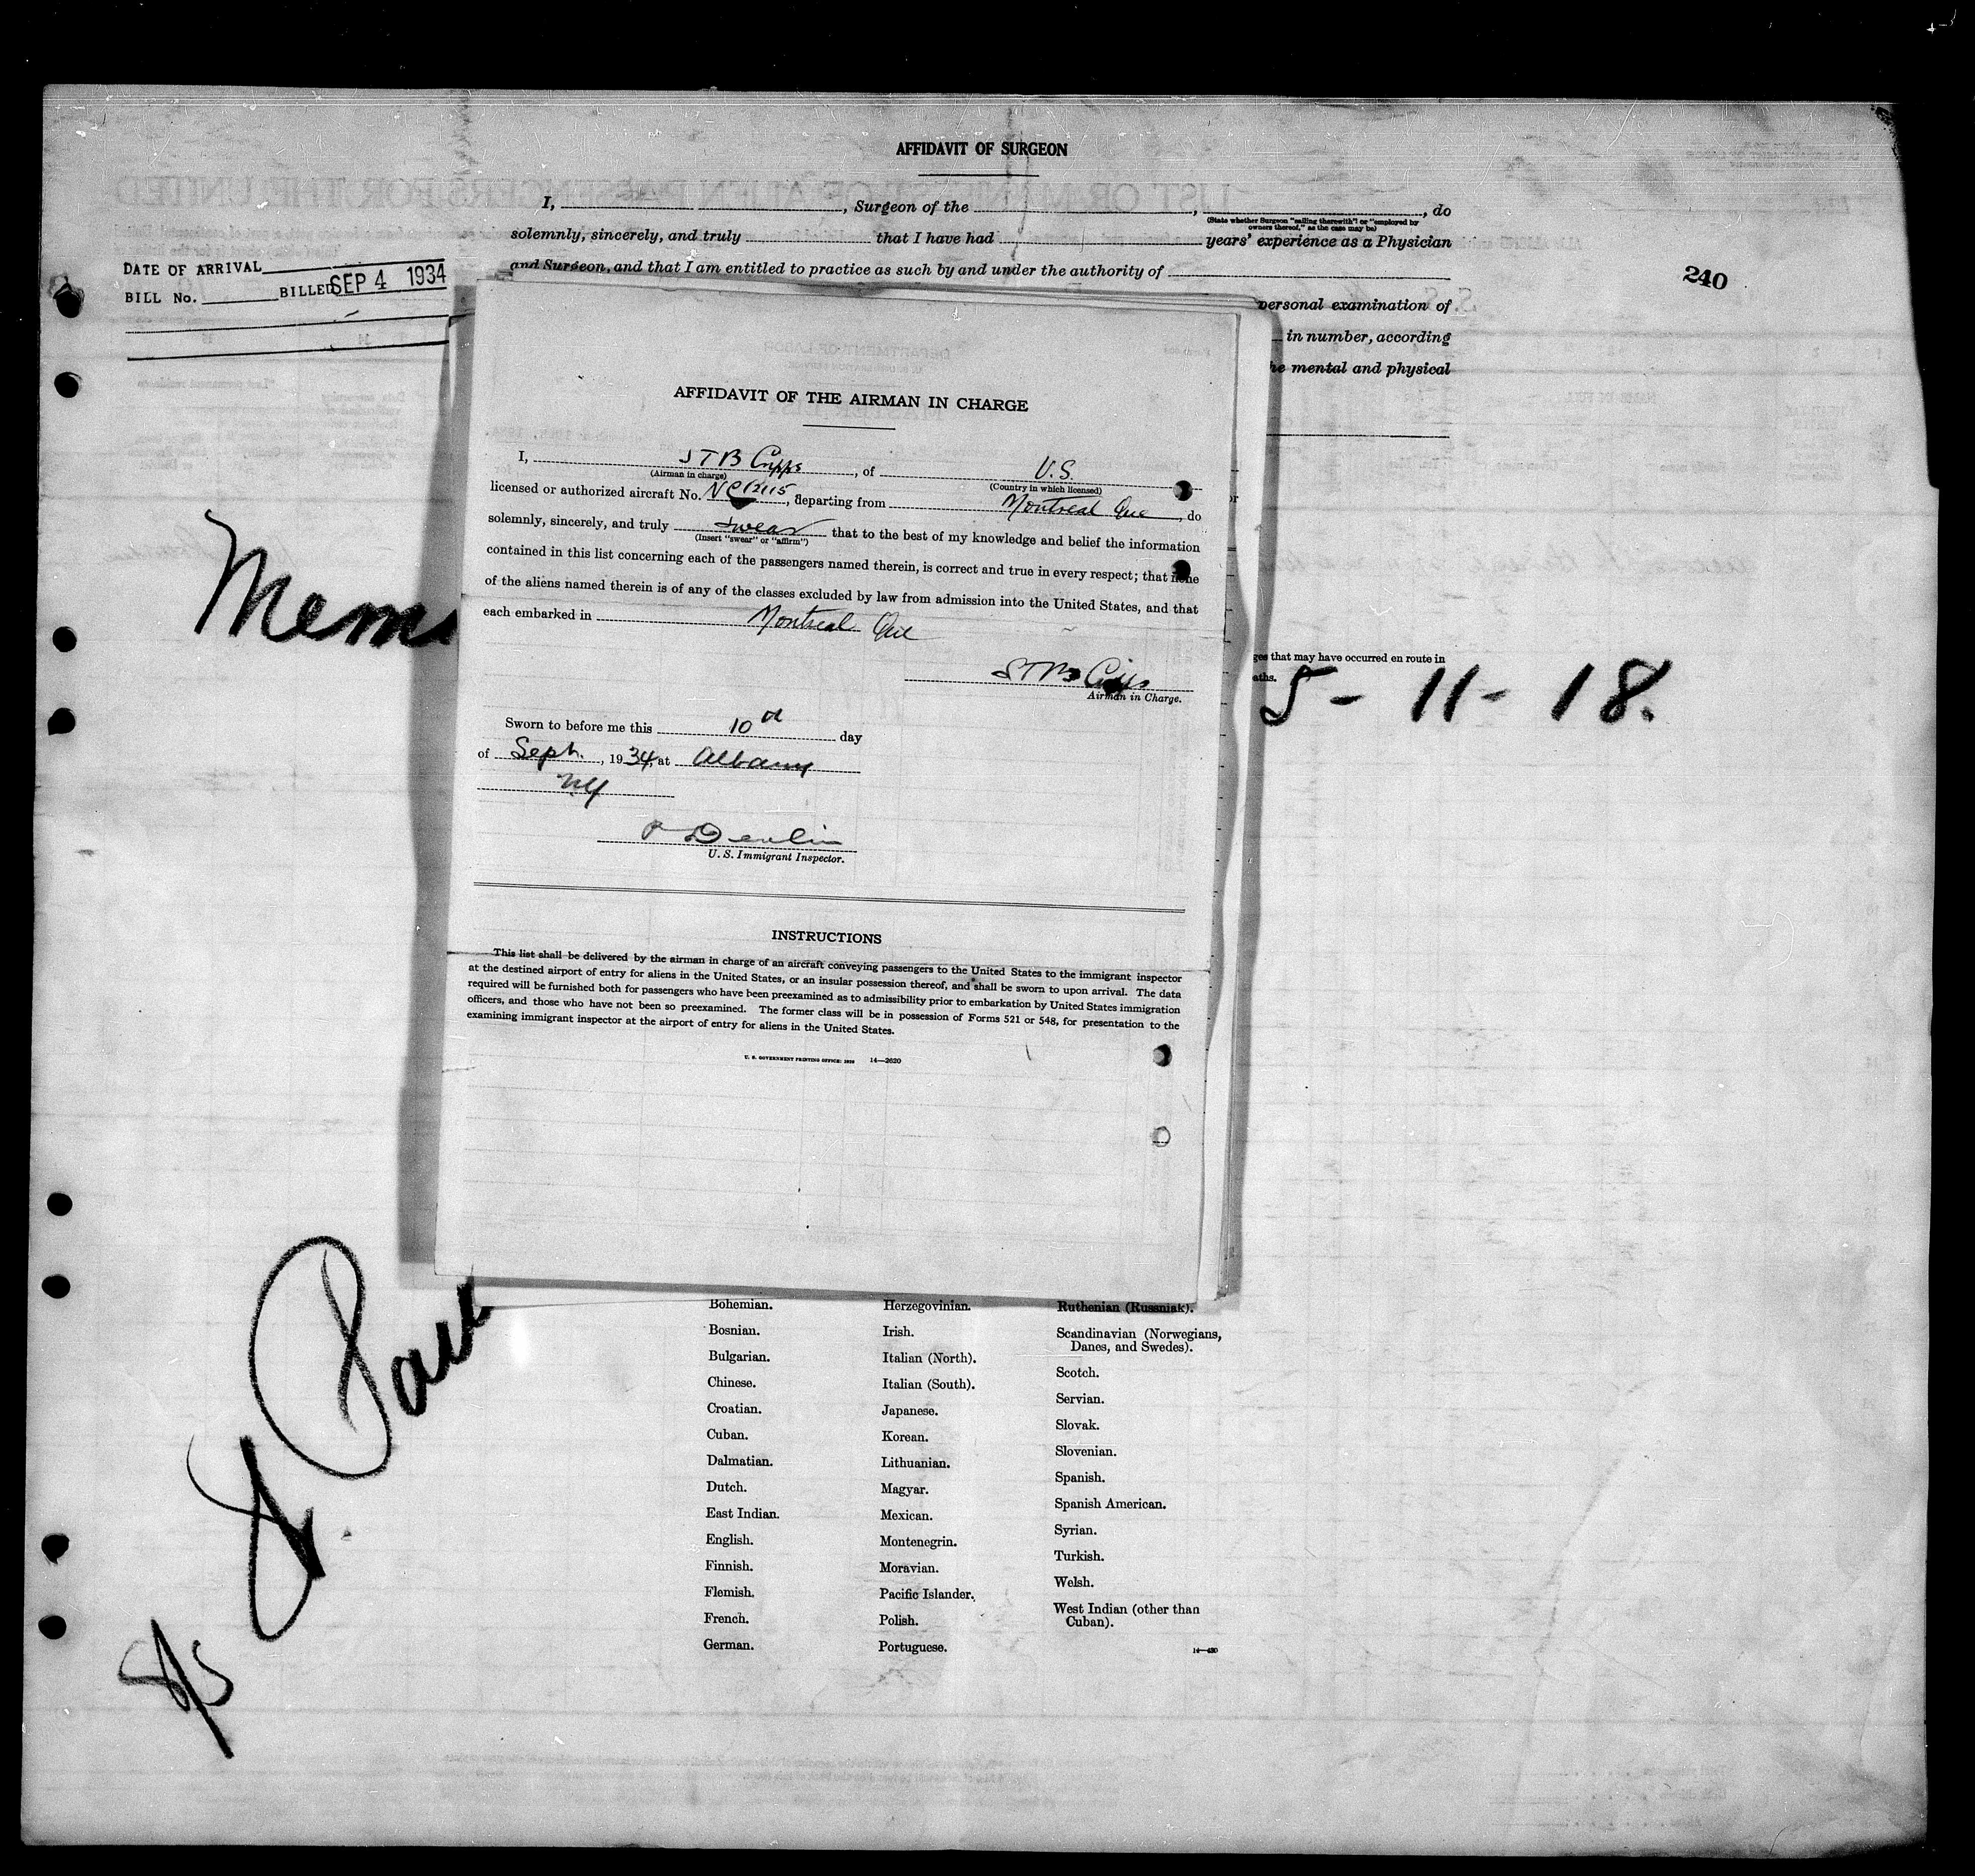 AFFIDAVIT OF SURGEON
I, , Surgeon of the , , do
(State whether Surgeon "sailing therewith" or "employed by
owners thereof," as the case may be)
solemnly, sincerely, and truly that I have had years' experience as a Physician
and Surgeon, and that I am entitled to practice as such by and under the authority of
DATE OF ARRIVAL
BILL No. BILLED SEP 4 1934
240
personal examination of
in number, according
the mental and physical
AFFIDAVIT OF THE AIRMAN IN CHARGE
I, STB Cripps, of U.S.
(Airman in charge) (Country in which licensed)
licensed or authorized aircraft No. , departing from Montreal Que, do
solemnly, sincerely, and truly swear that to the best of my knowledge and belief the information
(Insert "swear" or "affirm")
contained in this list concerning each of the passengers named therein, is correct and true in every respect; that none
of the aliens named therein is of any of the classes excluded by law from admission into the United States, and that
each embarked in Montreal Que
STB Cripps
Airman in Charge.
Sworn to before me this 10th day
of Sept., 1934, at Albany
NY
P Devlin
U. S. Immigrant Inspector.
INSTRUCTIONS
This list shall be delivered by the airman in charge of an aircraft conveying passengers to the United States to the immigrant inspector
at the destined airport of entry for aliens in the United States, or an insular possession thereof, and shall be sworn to upon arrival. The data
required will be furnished both for passengers who have been preexamined as to admissibility prior to embarkation by United States immigration
officers, and those who have not been so preexamined. The former class will be in possession of Forms 521 or 548, for presentation to the
examining immigrant inspector at the airport of entry for aliens in the United States.
U. S. GOVERNMENT PRINTING OFFICE: 14—2620
Mem
ges that may have occurred en route in
aths.
5 - 11 - 18.
Bohemian. Herzegovinian. Ruthenian (Russniak).
Bosnian. Irish. Scandinavian (Norwegians,
Danes, and Swedes).
Bulgarian. Italian (North).
Chinese. Italian (South). Scotch.
Croatian. Japanese. Servian.
Cuban. Korean. Slovak.
Dalmatian. Lithuanian. Slovenian.
Dutch. Magyar. Spanish.
East Indian. Mexican. Spanish American.
English. Montenegrin. Syrian.
Finnish. Moravian. Turkish.
Flemish. Pacific Islander. Welsh.
French. Polish. West Indian (other than
Cuban).
German. Portuguese.
14—430
S/S St. Paul